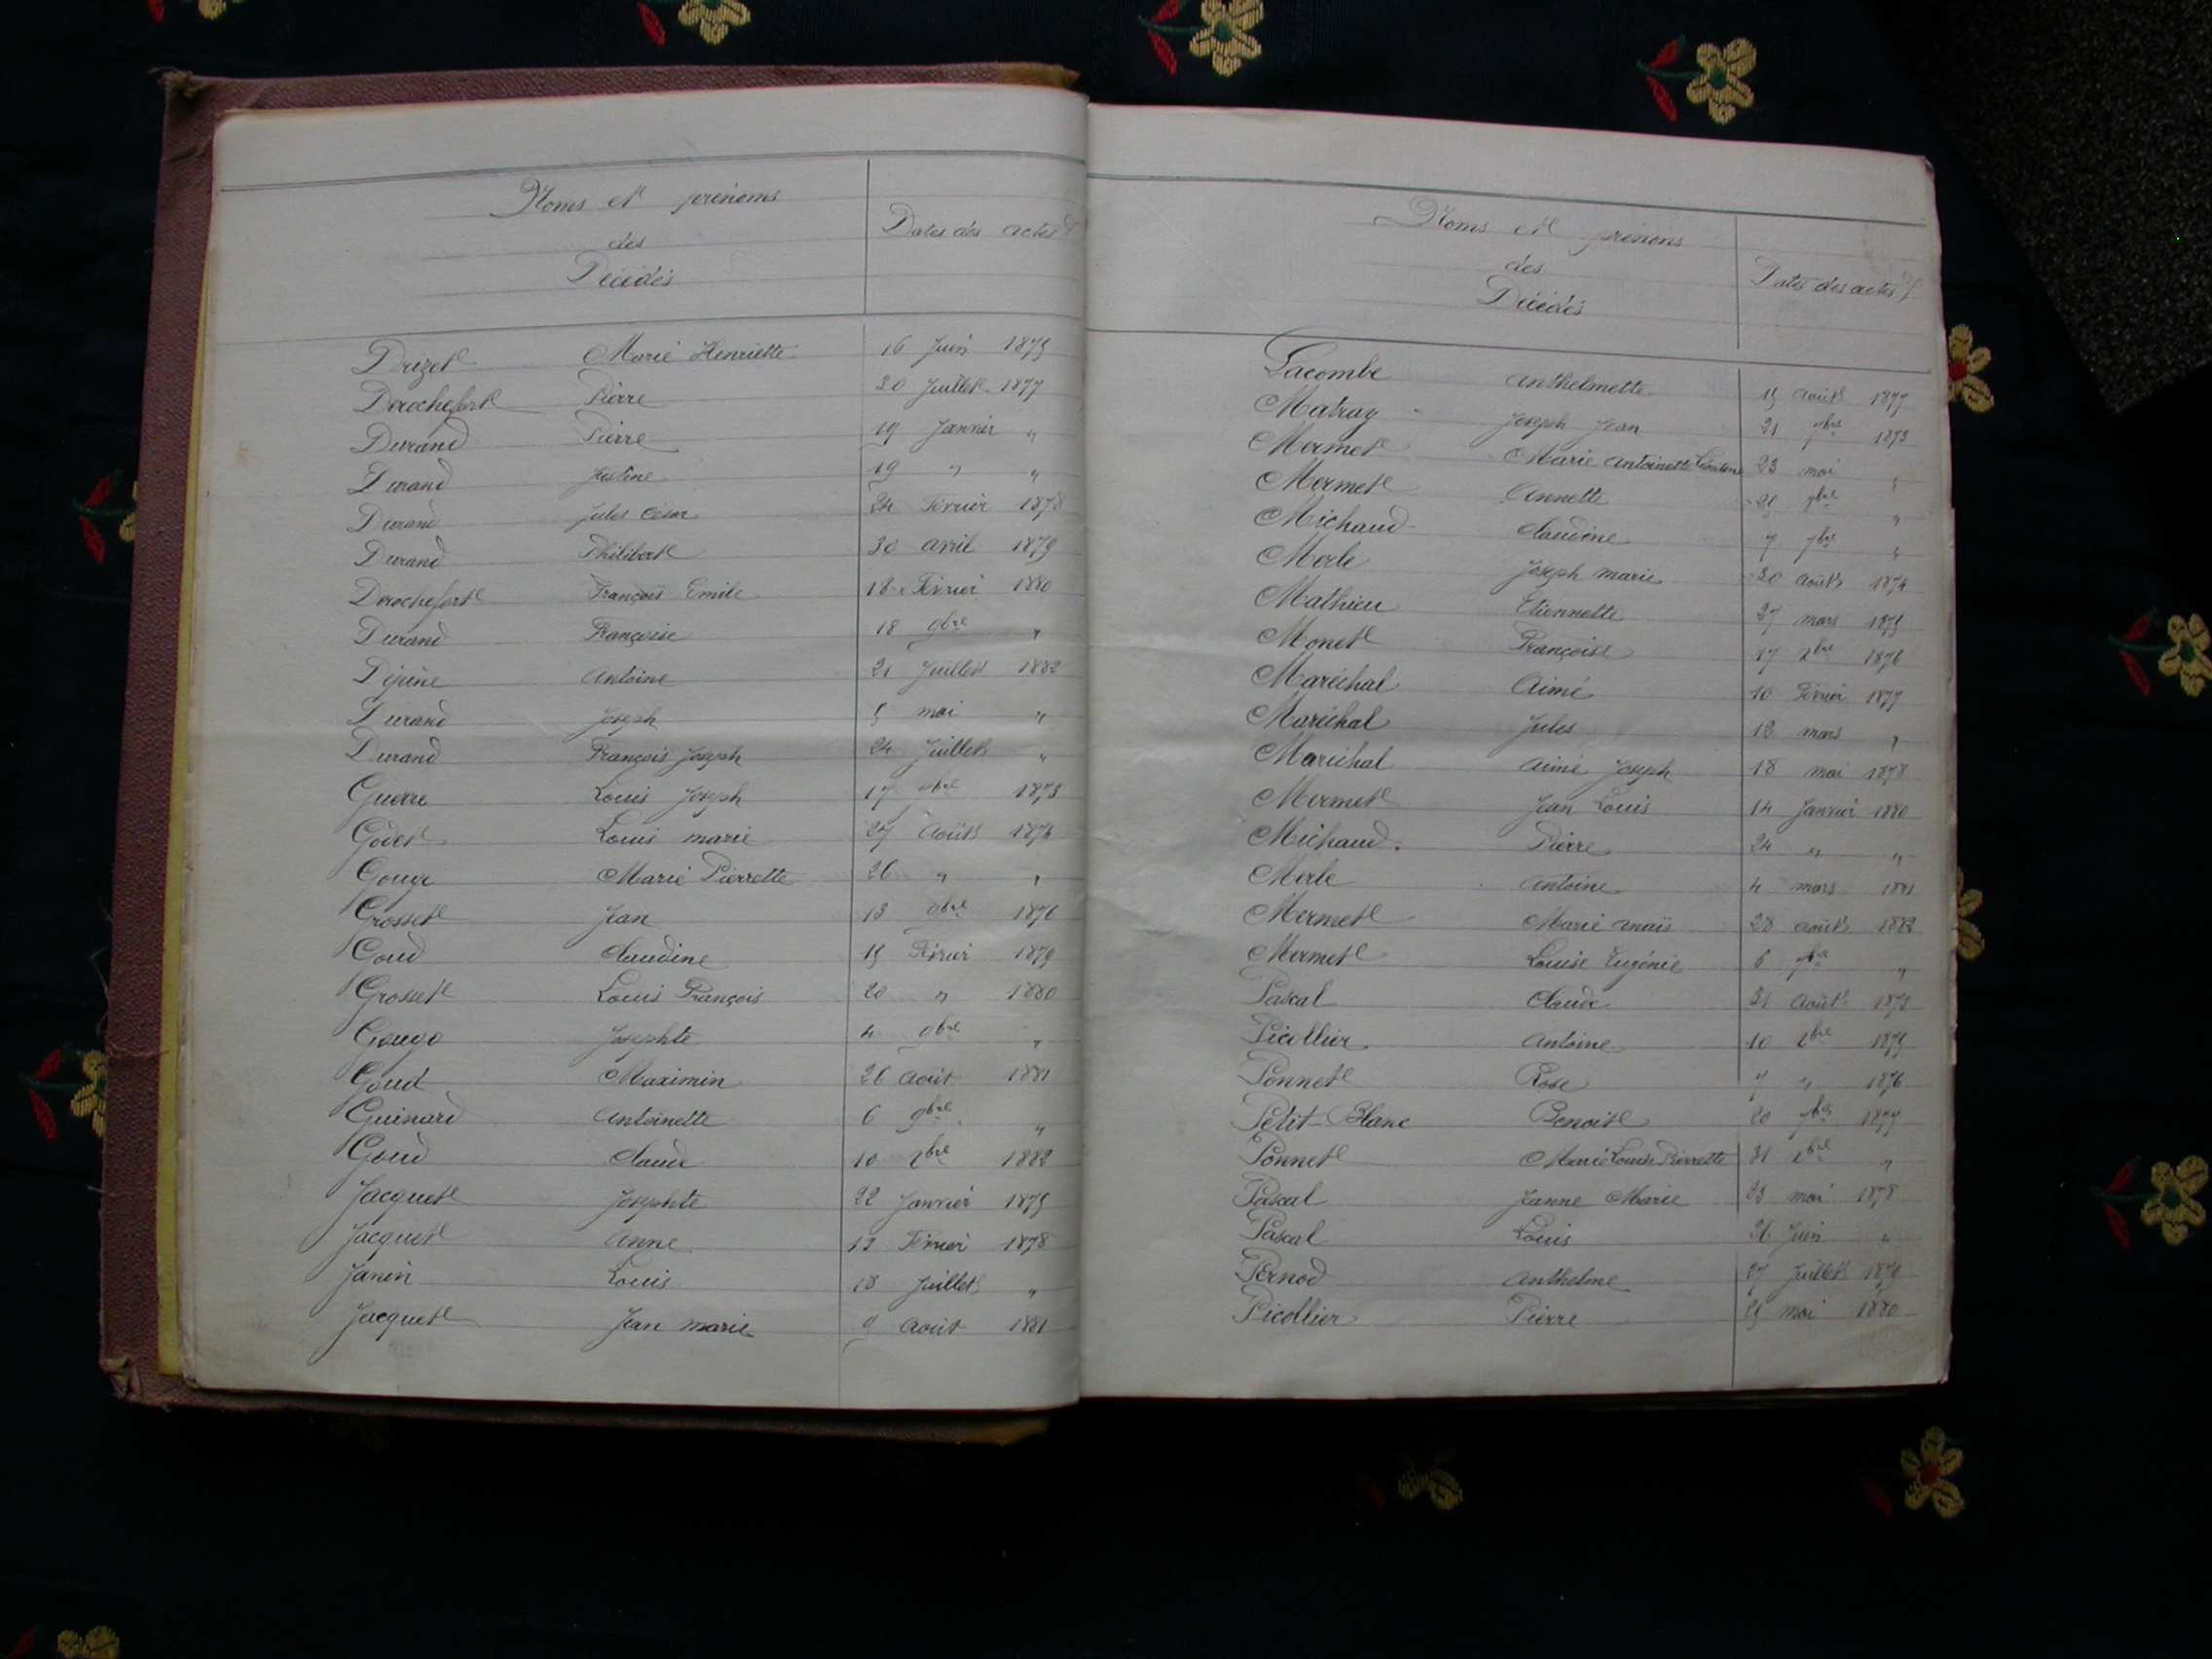 Noms et prénoms
des
Décédés
Dates des actes
Drizet Marie Henriette 16 Juin 1875
Derochefort Pierre 30 Juillet 1877
Durand Pierre 19 Janvier "
Durand Justine 19 " "
Durand Jules César 24 Février 1878
Durand Philibert 30 avril 1879
Derochefort François Emile 18 Février 1880
Durand Françoise 18 9bre "
Dijine Antoine 21 Juillet 1882
Durand Joseph 5 mai "
Durand François Joseph 24 Juillet "
Guerre Louis Joseph 17 1873
Godet Louis marie 27 Août 1874
Gouge Marie Pierrette 26 " "
Grosset Jean 13 1876
Goud Claudine 15 Février 1879
Grosset Louis François 20 " 1880
Gouge Josephte 4 9bre "
Goud Maximin 26 Août 1881
Guinard Antoinette 6 9bre "
Goud Claude 10 Xbre 1882
Jacquet Josephte 22 Janvier 1875
Jacquet Anne 13 Février 1878
Janin Louis 18 Juillet "
Jacquet Jean marie 9 Août 1881
Noms et prénoms
des
Décédés
Dates des actes
Lacombe Anthelmette 15 août 1877
Matray Joseph Jean 21 7bre 1873
Mermet Marie Antoinette 23 mai "
Mermet Annette 21 "
Michaud Claudine 7 7bre "
Merle Joseph marie 30 août 1874
Mathieu Etiennette 27 mars 1875
Monet Françoise 17 Xbre 1876
Maréchal Aimé 10 Février 1877
Maréchal Jules 12 mars "
Maréchal Aimé Joseph 18 mai 1878
Mermet Jean Louis 14 Janvier 1880
Michaud Pierre 24 " "
Merle Antoine 4 mars 1881
Mermet Marie anaïs 28 août 1882
Mermet Louise Eugénie 6 7bre "
Pascal Claude 21 Août
Picollier Antoine 10 Xbre 1875
Ponnet Rose 7 " 1876
Petit-Blanc Benoit 20 7bre 1877
Ponnet Marie Louise Pierrette 31 Xbre "
Pascal Jeanne Marie 23 mai 1878
Pascal Louis 26 Juin "
Pernod Anthelme 27 Juillet 1879
Picollier Pierre 25 mai 1880